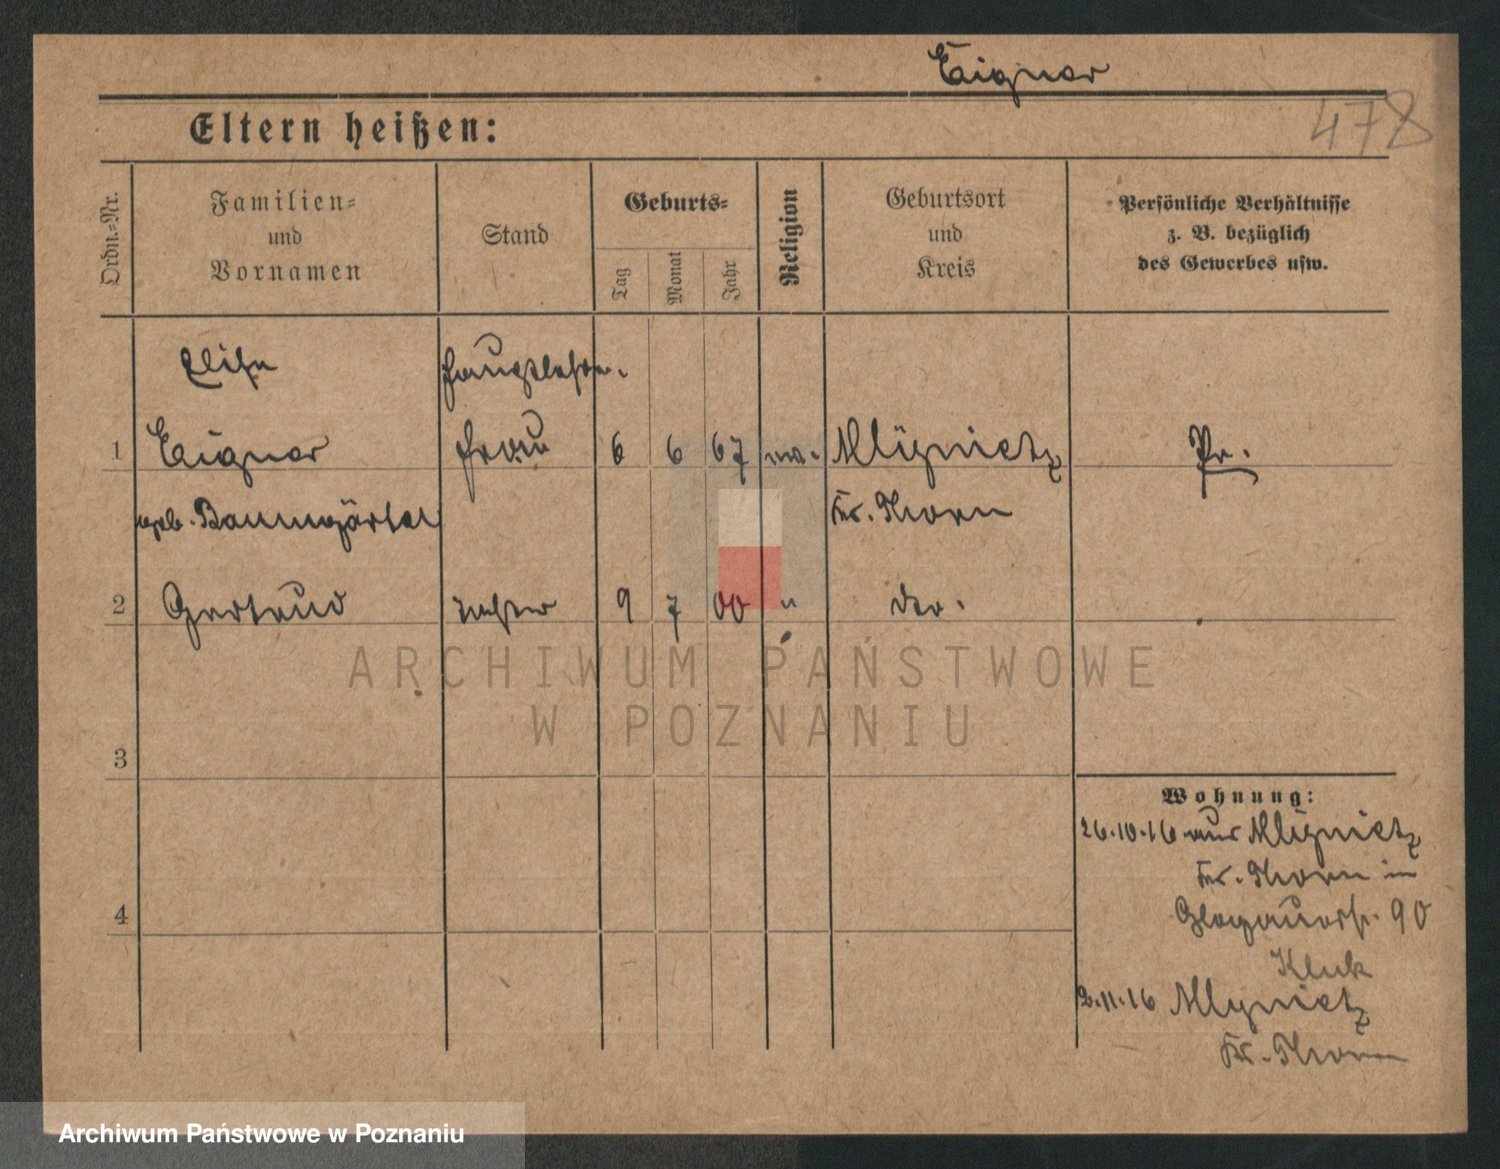 Eigner
478
Eltern heißen:
Ordn.-Nr.
Familien-
und
Vornamen
Stand
Geburts-
Tag
Monat
Jahr
Religion
Geburtsort
und
Kreis
Persönliche Verhältnisse
z. B. bezüglich
des Gewerbes usw.
Elise
Hauptlehrer.
1 Eigner frau 6 6 67 ev. Mlynietz Pr.
geb. Baumgärtel Kr. Thorn
2 Gertrud 9 7 00 " do.
3
4
Wohnung:
26.10.16 aus Mlynietz
Kr. Thorn in
Glogauerstr. 90
Kluk
2.11.16 Mlynietz
Kr. Thorn
ARCHIWUM PAŃSTWOWE
W POZNANIU
Archiwum Państwowe w Poznaniu